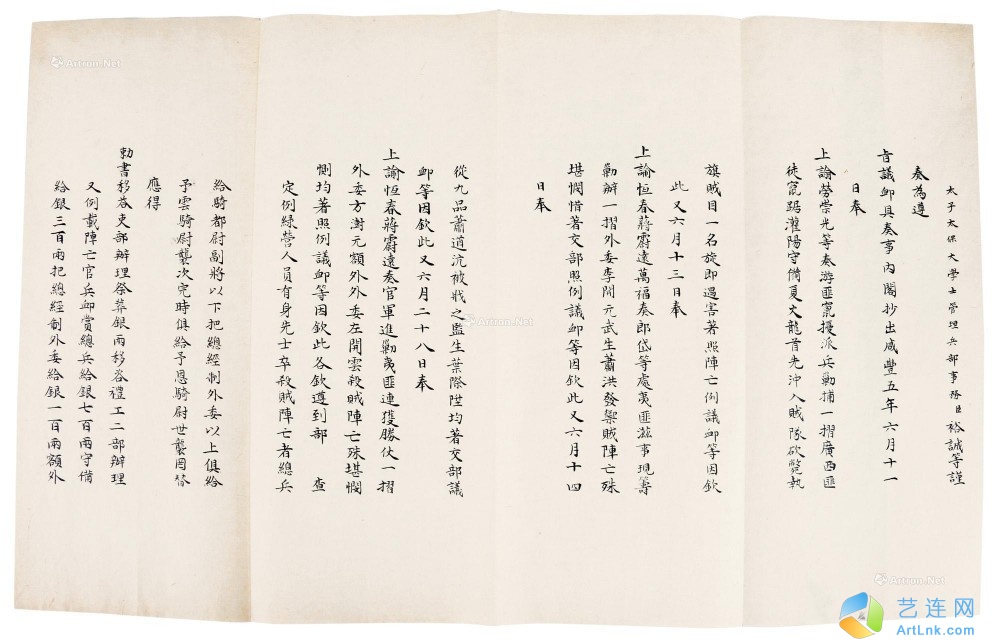 太子太保大學士管理兵部事務臣裕誠等謹
奏為遵
旨議卹具奏事內閣抄出咸豐五年六月十一
日奉
上諭勞崇光等奏游匪竄擾派兵勦捕一摺廣西匪
徒竄踞灌陽守備夏大龍首先沖入賊隊砍斃執
旗賊目一名旋即遇害著照陣亡例議卹等因欽
此又六月十三日奉
上諭恒春蔣霨遠萬福奏郎岱等處夷匪滋事現籌
勦辦一摺外委李開元武生蕭洪發禦賊陣亡殊
堪憫惜著交部照例議卹等因欽此又六月十四
日奉
從九品蕭道沆被戕之監生葉際陞均著交部議
卹等因欽此又六月二十八日奉
上諭恒春蔣霨遠奏官軍進勦夷匪連獲勝仗一摺
外委方澍元額外外委左開雲殺賊陣亡殊堪憫
惻均著照例議卹等因欽此各欽遵到部 查
定例綠營人員有身先士卒殺賊陣亡者總兵
給騎都尉副將以下把總經制外委以上俱給
予雲騎尉襲次完時俱給予恩騎尉世襲罔替
應得
勅書移咨吏部辦理祭葬銀兩移咨禮工二部辦理
又例載陣亡官兵卹賞總兵給銀七百兩守備
給銀三百兩把總經制外委給銀一百兩額外
Artron.Net
Artron.Net
Artron.Net
艺连网
ArtLnk.com